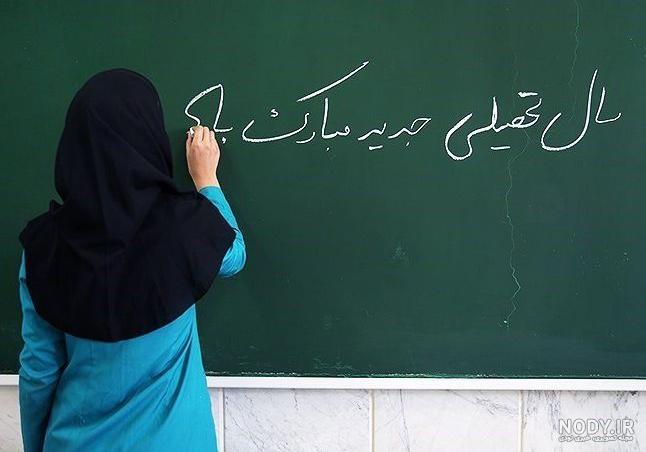 سال تحصیلی جدید مبارک باد
NODY.IR